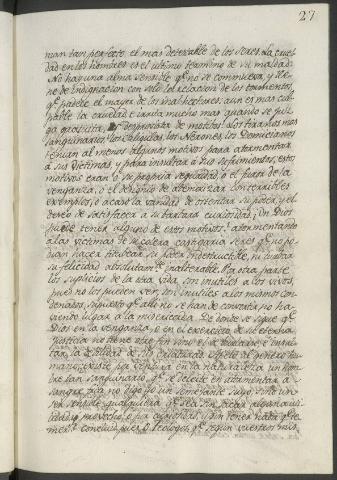 27
man tan perfecto, el mas detestable de los seres. La cruel
dad en los hombres es el ultimo termino de su maldad.
No hay una alma sensible qe. no se conmueva, y lle
ne de indignacion con solo la relacion de los tormentos,
qe. padece el mayor de los malhechores; aun es mas cul
pable la crueldad e irrita mucho mas quando se juz
ga gratuita, y desprovista de motivos. Los tiranos mas
sanguinarios, los Caligulas, los Nerones, los Domicianos
tenian al menos algunos motivos para atormentar
a sus victimas, y para insultar à sus sufrimientos, estos
motivos eran o su propria seguridad, o el furor de la
venganza, o el designio de atemorizar con terribles
exemplos, o acaso la vanidad de ostentar su poder, y el
deseo de satisfacer a su barbara curiosidad; Un Dios
puede tener alguno de estos motivos? atormentando
a las victimas de su colera castigaria seres qe. no po
dian hacer titubear su poder indestructible, ni turbar
su felicidad absolutamte. inalterable. Por otra parte
los suplicios de la otra vida son inutiles a los vivos,
pues no los pueden ver, son inutiles a los mismos con
denados, supuesto qe. alli no se han de convertir, no ha
viendo lugar a la misericordia. De donde se sigue qe.
Dios en la venganza, e en el exercicio de su eterna
justicia no tiene otro fin sino el de
la debilidad de sus criaturas. Apelo al genero hu
mano; existe por ventura en la naturaleza un hom
bre tan sanguinario qe. se deleite en atormentar a
sangre fria no digo yo un semejante suyo, sino un
ser sensible qualquiera qe. sea sin sacar alguna uti
lidad, provecho, o sin curiosidad, y sin tener nada qe. te
mer? concluid pues ò Teologos, qe. segun vuestros mis